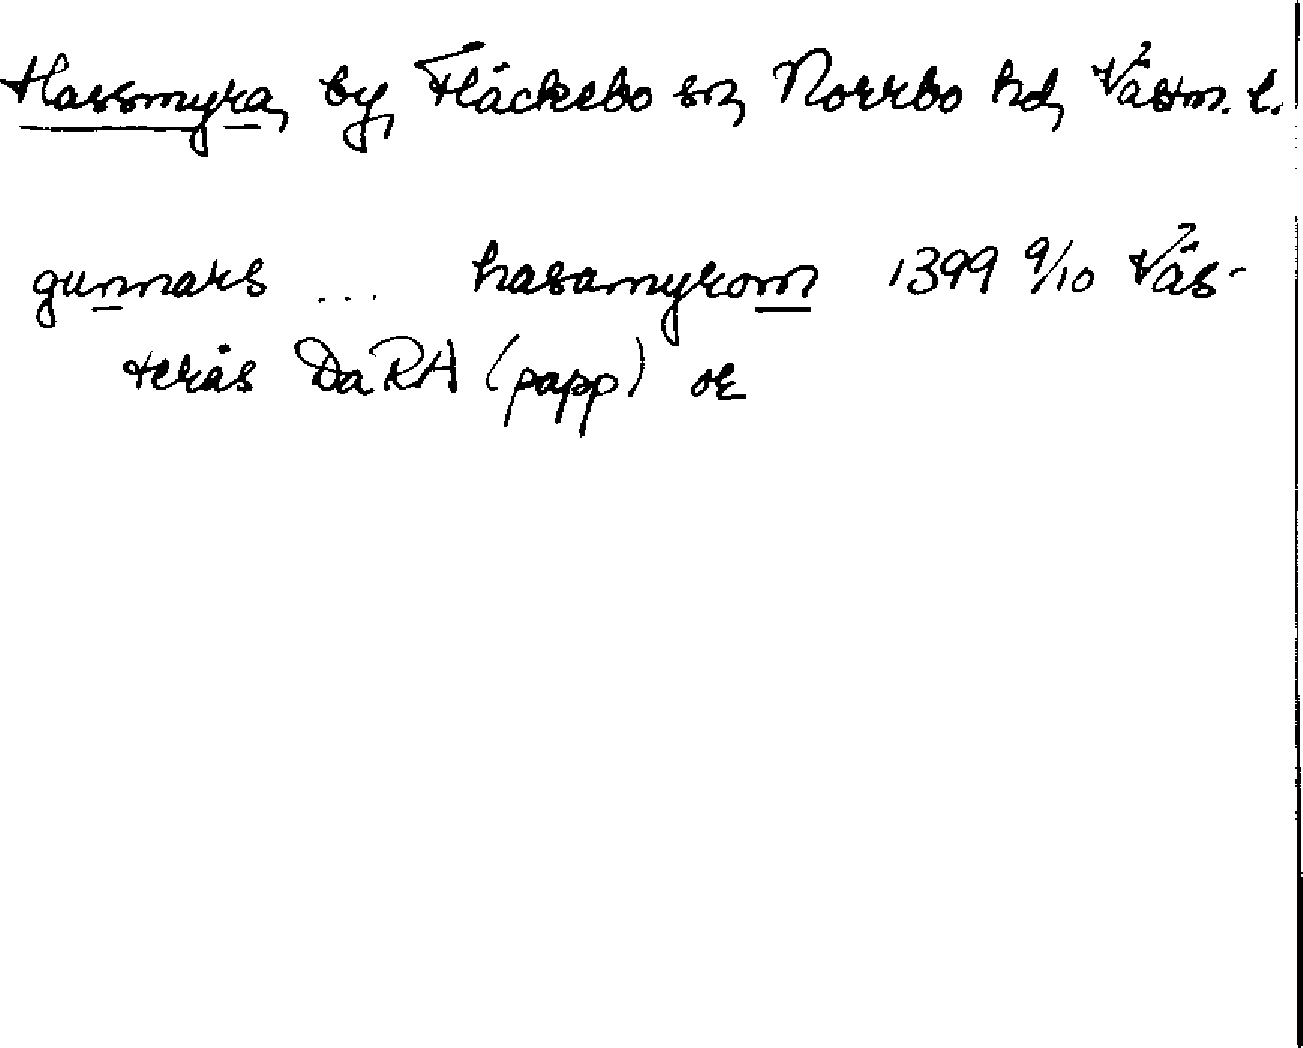 Hassmyra, by, Fläckebo sn, Norrbo hd, Västm. l.
gunnars ... hasamyrom 1399 9/10 Väs-
terås DaRA (papp) or